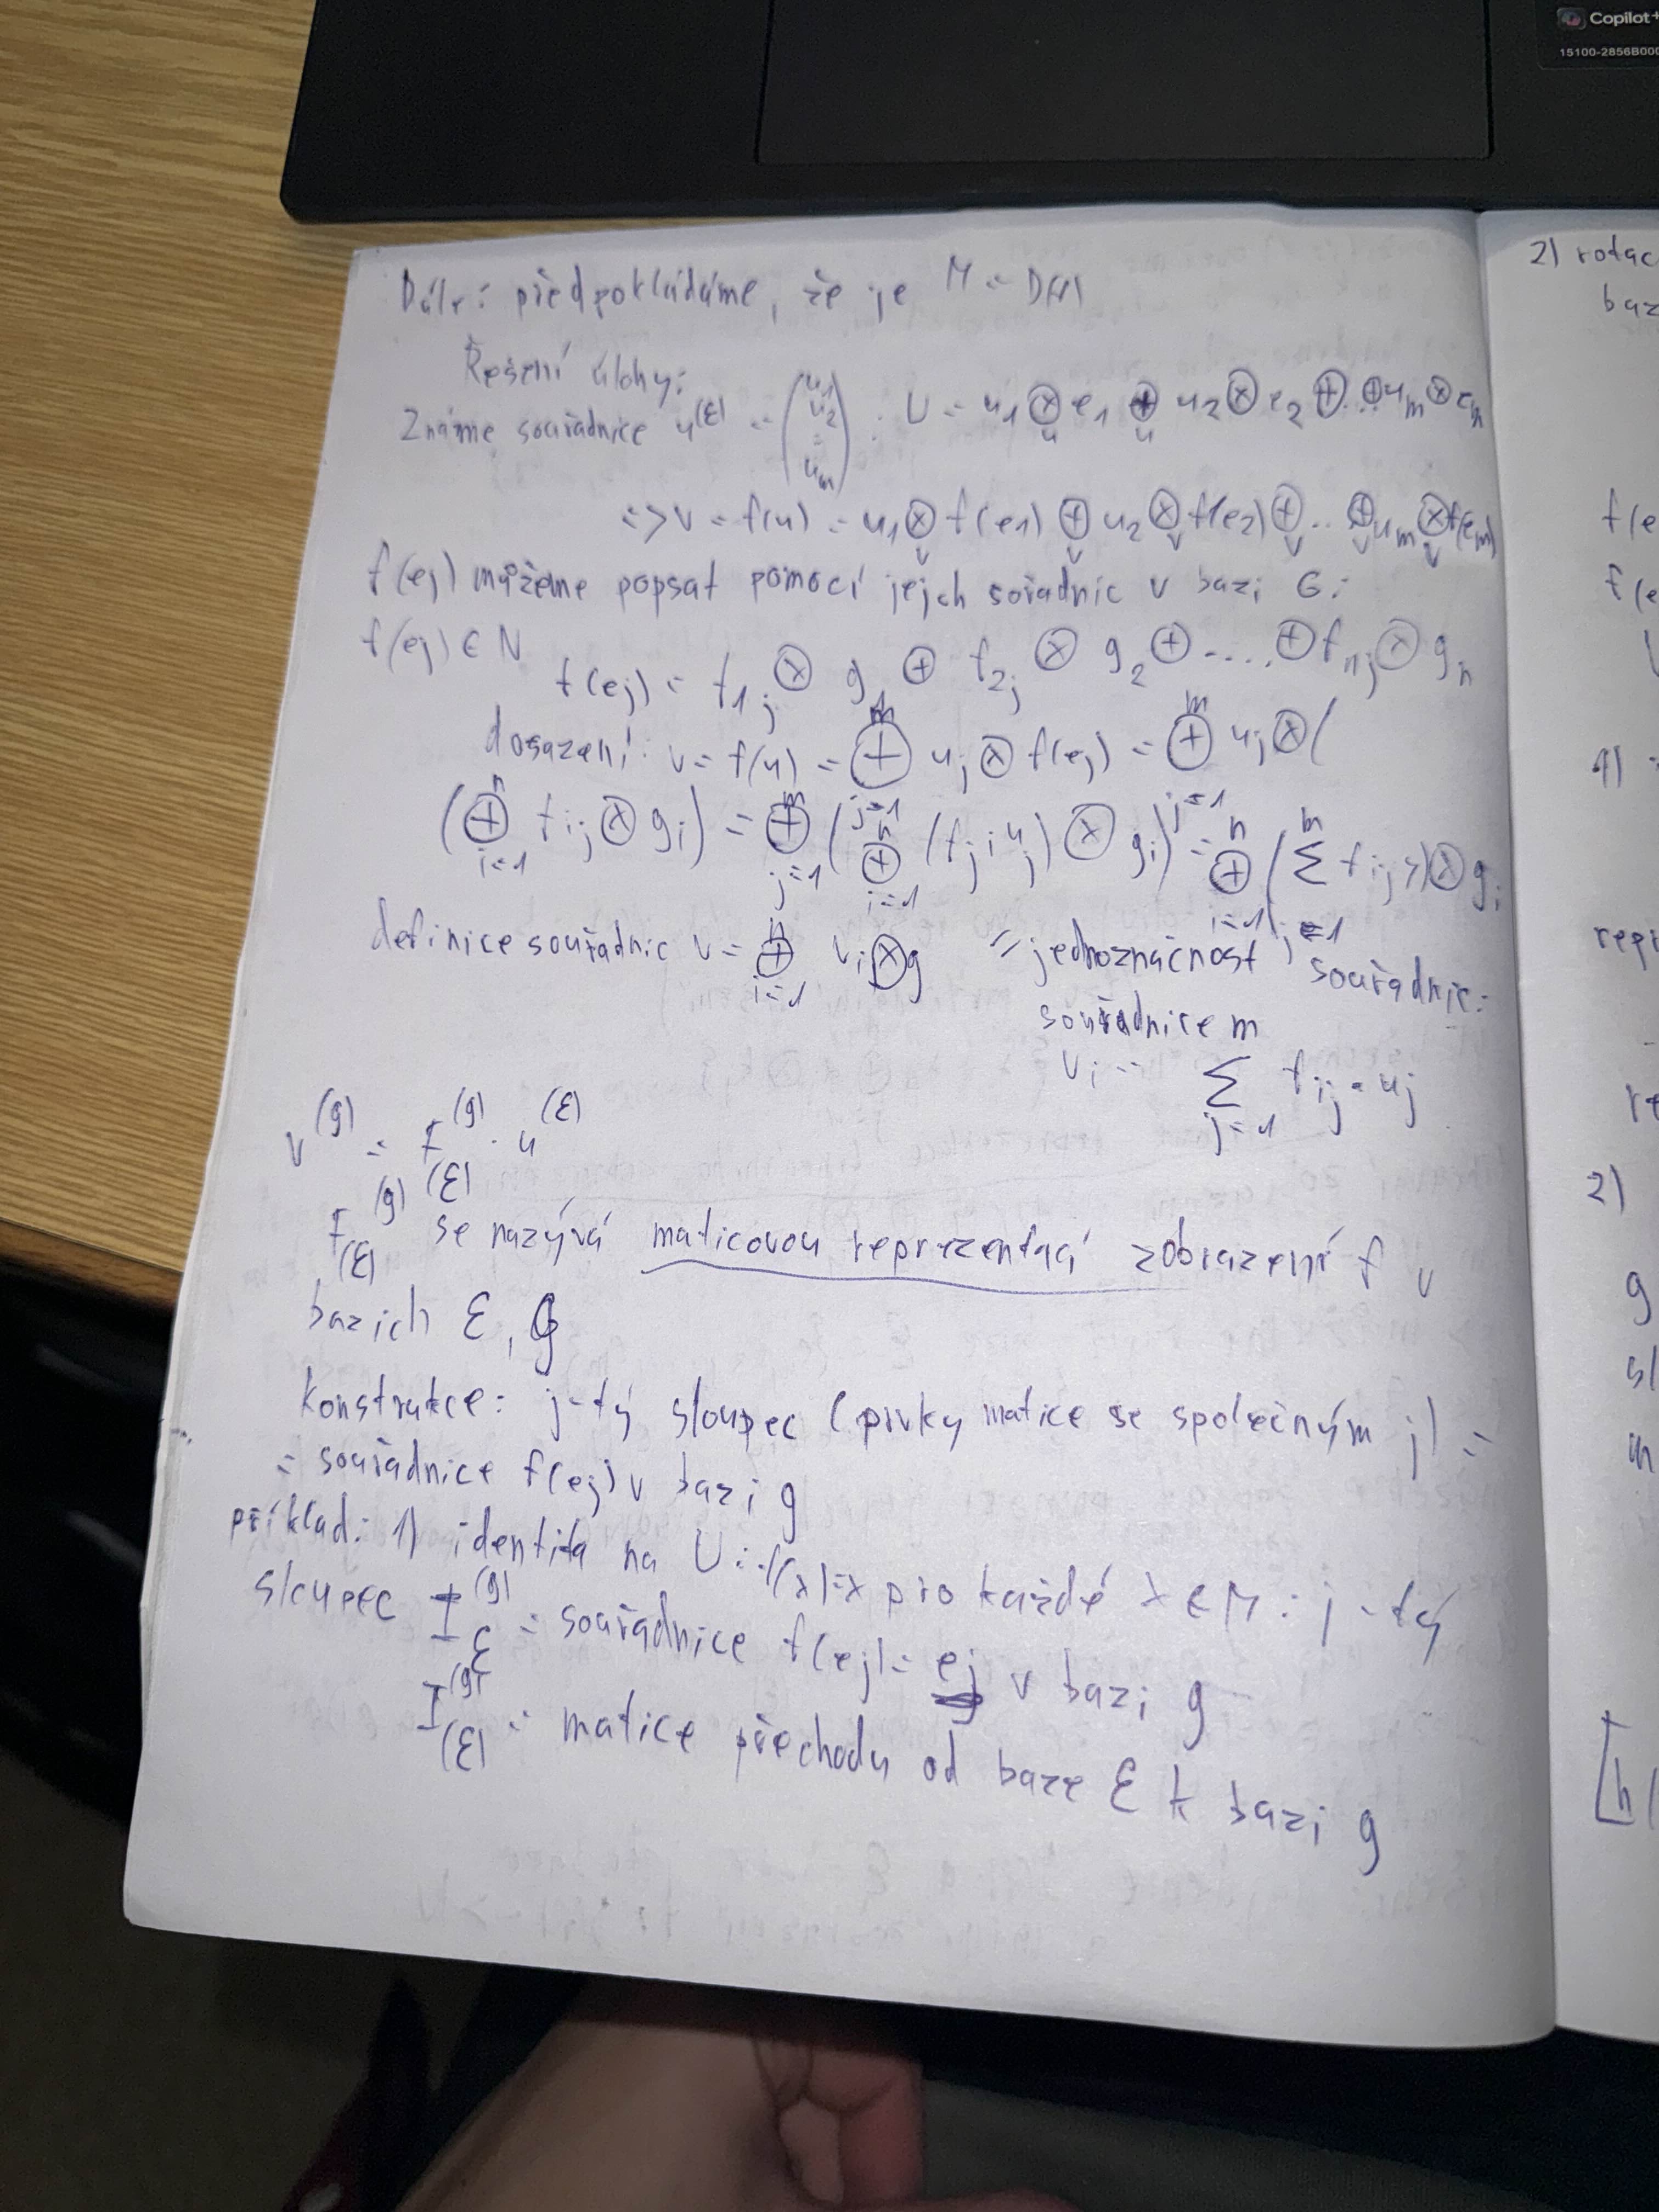 Copilot+
15100-2856B000
Dále: předpokládáme, že je M = D(f)
Řešení úlohy:
Známe souřadnice u^(ε) = (u1 u2 : um) : U = u1 ⊗ e1 ⊕ u2 ⊗ e2 ⊕ ... ⊕ um ⊗ em
=> v = f(u) = u1 ⊗ f(e1) ⊕ u2 ⊗ f(e2) ⊕ .. ⊕ um ⊗ f(em)
f(ej) můžeme popsat pomocí jejch sořadnic v bazi G:
f(ej) ∈ N
f(ej) = f1j ⊗ g1 ⊕ f2j ⊗ g2 ⊕ .... ⊕ fnj ⊗ gn
dosazení: v = f(u) = ⊕ m j=1 uj ⊗ f(ej) = ⊕ m j=1 uj ⊗ (
(⊕ n i=1 fij ⊗ gi) = ⊕ m j=1 (⊕ n i=1 (fji uj) ⊗ gi) = ⊕ n i=1 (Σ m j=1 fij) ⊗ gi
definice souřadnic v = ⊕ n i=1 vi ⊗ g = jednoznačnost souřadnic:
souřadnice m
vi = Σ j=1 fij · uj
v^(g) = F^(g)_(ε) · u^(ε)
F^(g)_(ε) se nazývá maticovou reprezentací zobrazení f v
bazich ε, G
konstrukce: j-tý sloupec (prvky matice se společným j) =
= souřadnice f(ej) v bazi g
příklad: 1) identita na U: f(x)=x pro každé x ∈ M: j-tý
sloupec I^(g)_ε = souřadnice f(ej) = ej v bazi g
I^(g)_(ε) = matice přechodu od baze ε k bazi g
2) rotac
baz
f(e
f(e
1)
repr
re
2)
g
sl
m
h(